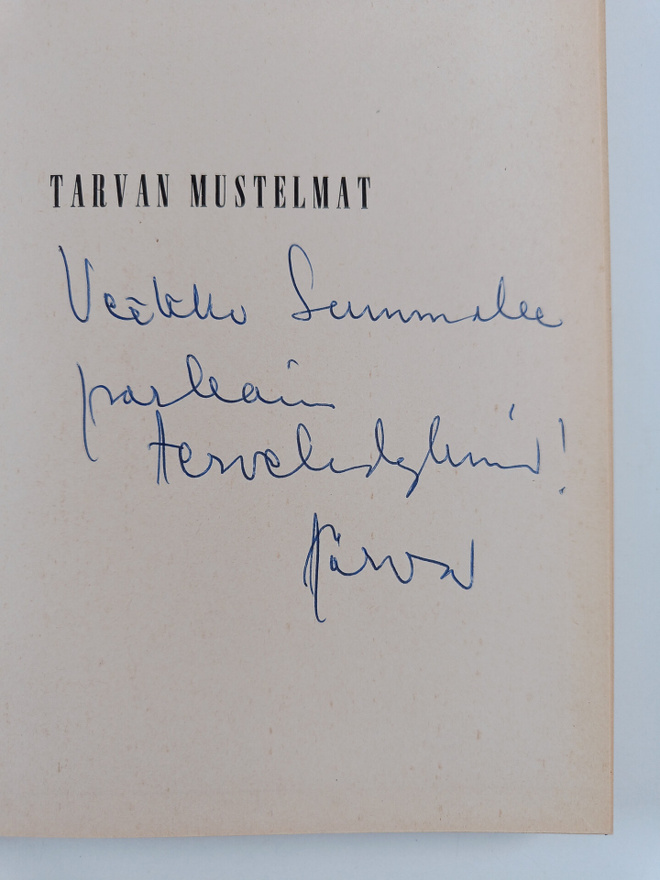 TARVAN MUSTELMAT
Veikko Summalle
parhain
tervehdyksin!
Tarva